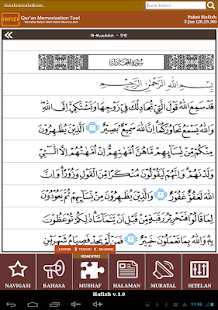 Assalamualaikum,
Kata kunci
HAFIZH
Qur'an Memorization Tool
Paket Hafizh
3 Juz (28,29,30)
Al-Mujadilah - 542
سُورَةُ الْمُجَادَلَةِ
بِسْمِ اللَّهِ الرَّحْمَٰنِ الرَّحِيمِ
قَدْ سَمِعَ اللَّهُ قَوْلَ الَّتِي تُجَادِلُكَ فِي زَوْجِهَا وَتَشْتَكِي إِلَى اللَّهِ
وَاللَّهُ يَسْمَعُ تَحَاوُرَكُمَا إِنَّ اللَّهَ سَمِيعٌ بَصِيرٌ ١ الَّذِينَ يُظَاهِرُونَ
مِنكُم مِّن نِّسَائِهِم مَّا هُنَّ أُمَّهَاتِهِمْ إِنْ أُمَّهَاتُهُمْ إِلَّا اللَّائِي
وَلَدْنَهُمْ وَإِنَّهُمْ لَيَقُولُونَ مُنكَرًا مِّنَ الْقَوْلِ وَزُورًا وَإِنَّ
اللَّهَ لَعَفُوٌّ غَفُورٌ ٢ وَالَّذِينَ يُظَاهِرُونَ مِن نِّسَائِهِمْ ثُمَّ يَعُودُونَ
لِمَا قَالُوا فَتَحْرِيرُ رَقَبَةٍ مِّن قَبْلِ أَن يَتَمَاسَّا ذَٰلِكُمْ تُوعَظُونَ
بِهِ وَاللَّهُ بِمَا تَعْمَلُونَ خَبِيرٌ ٣ فَمَن لَّمْ يَجِدْ فَصِيَامُ شَهْرَيْنِ
NAVIGASI
BAHASA
MUSHAF
HALAMAN
MURATAL
SETELAN
Hafizh v.1.0
11:16